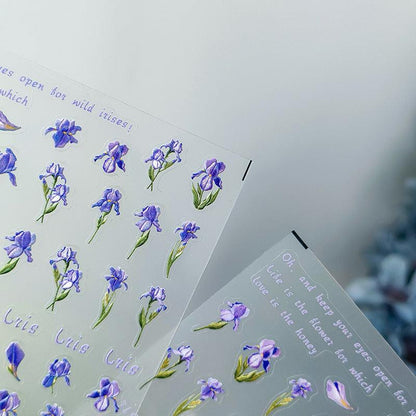 yes open for wild irises!
which
Iris Iris Iris
Oh, and keep your eyes open for
Life is the flower for which
love is the honey